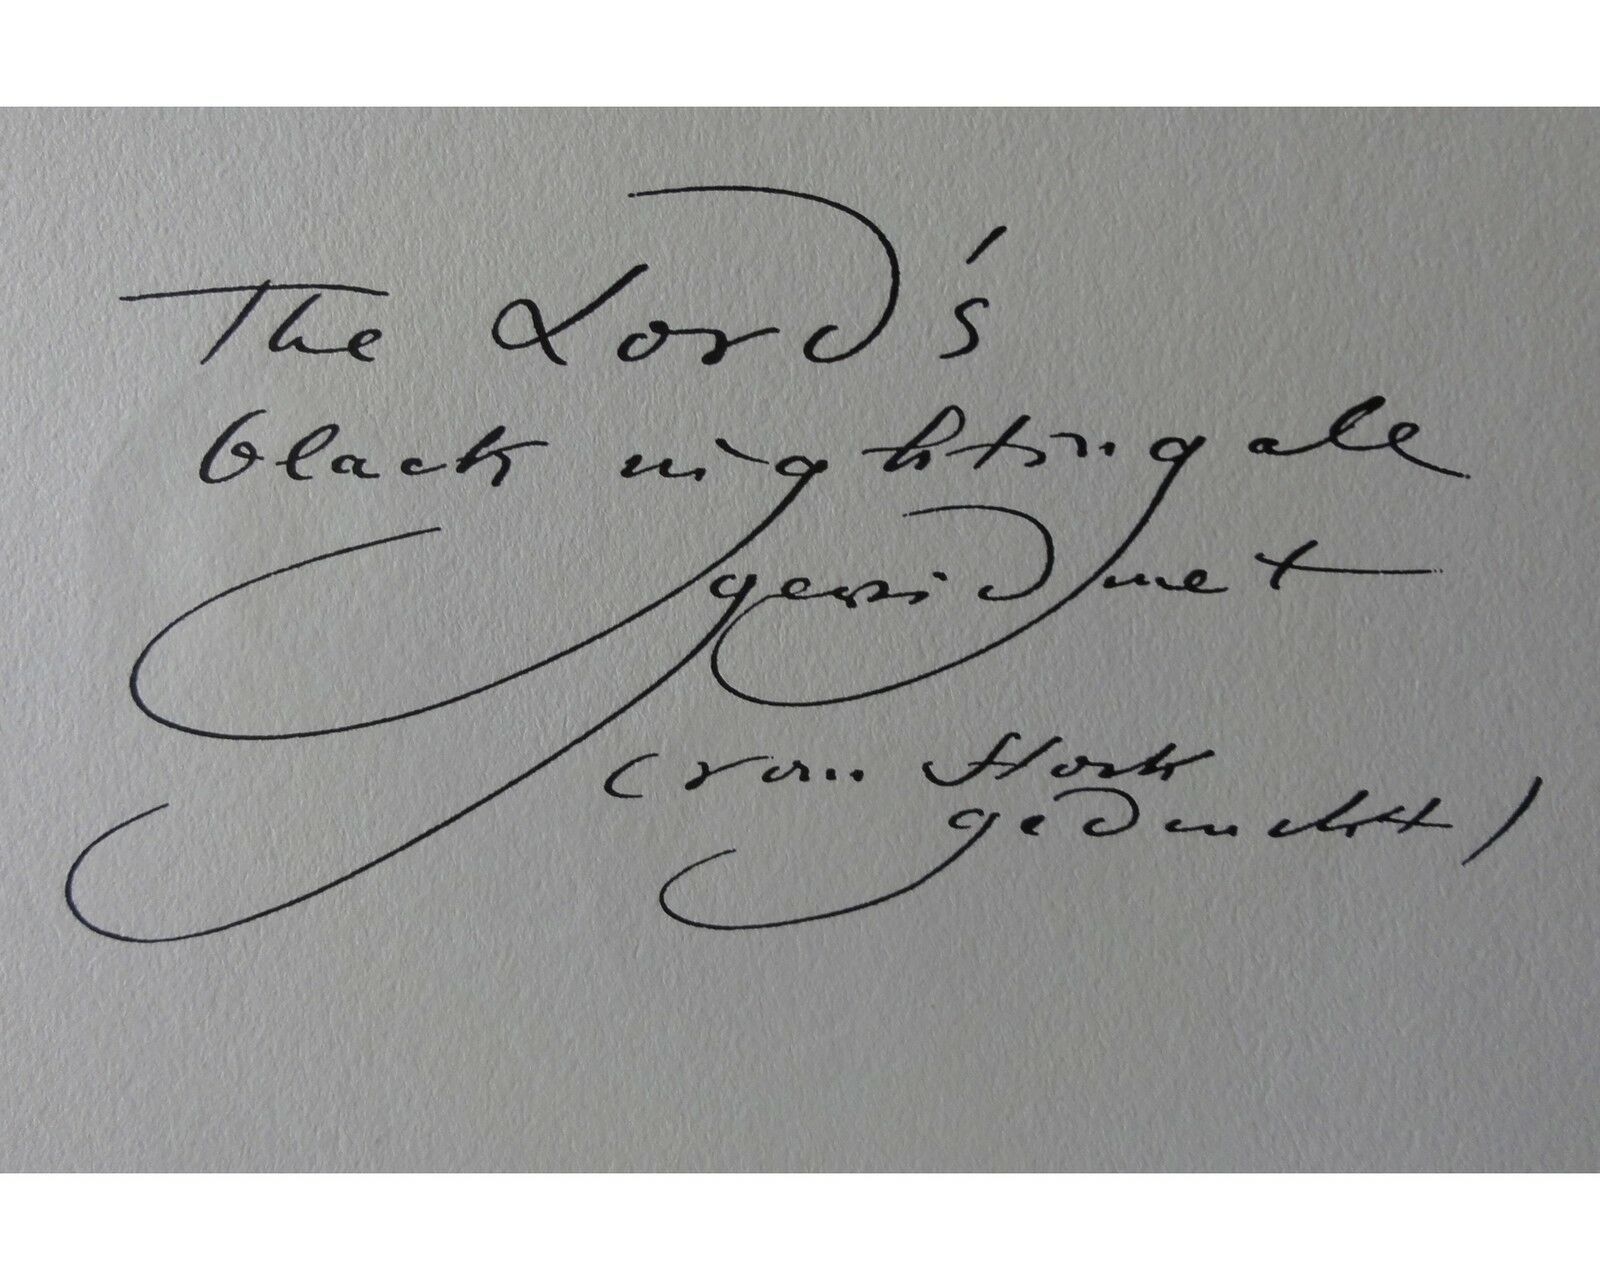 The Lord's
black nightingale
gewidmet
(vom Stock
gedruckt)